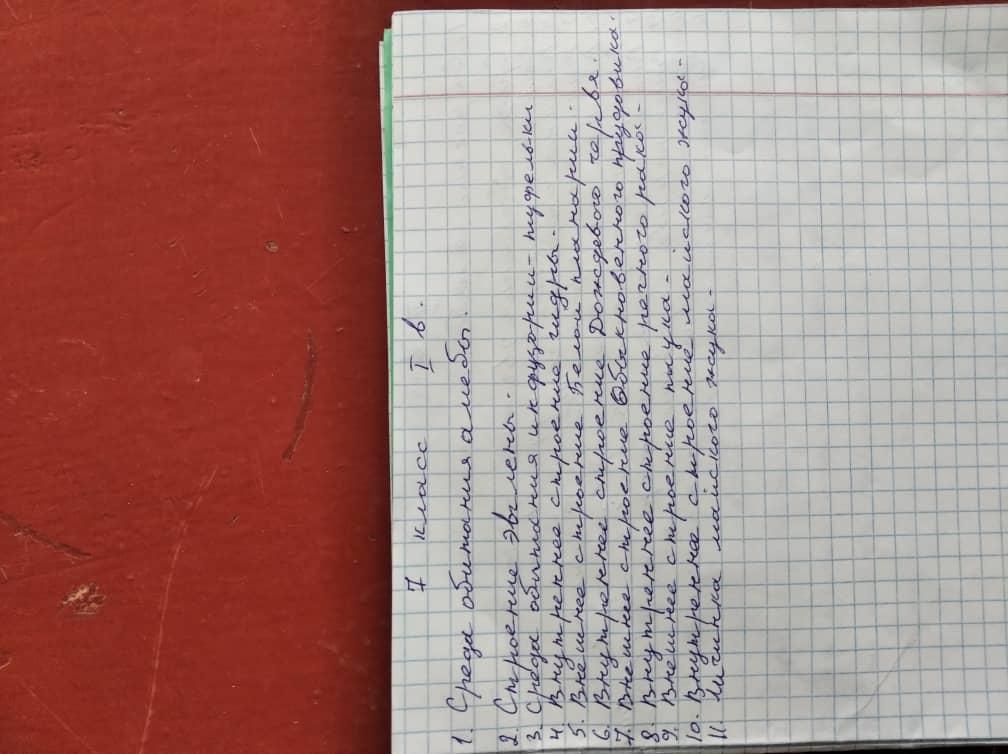 7 класс I в.
1. Среда обитания амебы.
2. Строение эвглены.
3. Среда обитания инфузории-туфельки
4. Внутреннее строение гидры.
5. Внешнее строение Белой планарии.
6. Внутреннее строение Дождевого червя.
7. Внешние строение Обыкновенного прудовика.
8. Внутреннее строение речного рака.
9. Внешнее строение паука.
10. Внутреннее строение майского жука.
11. Личинка майского жука.